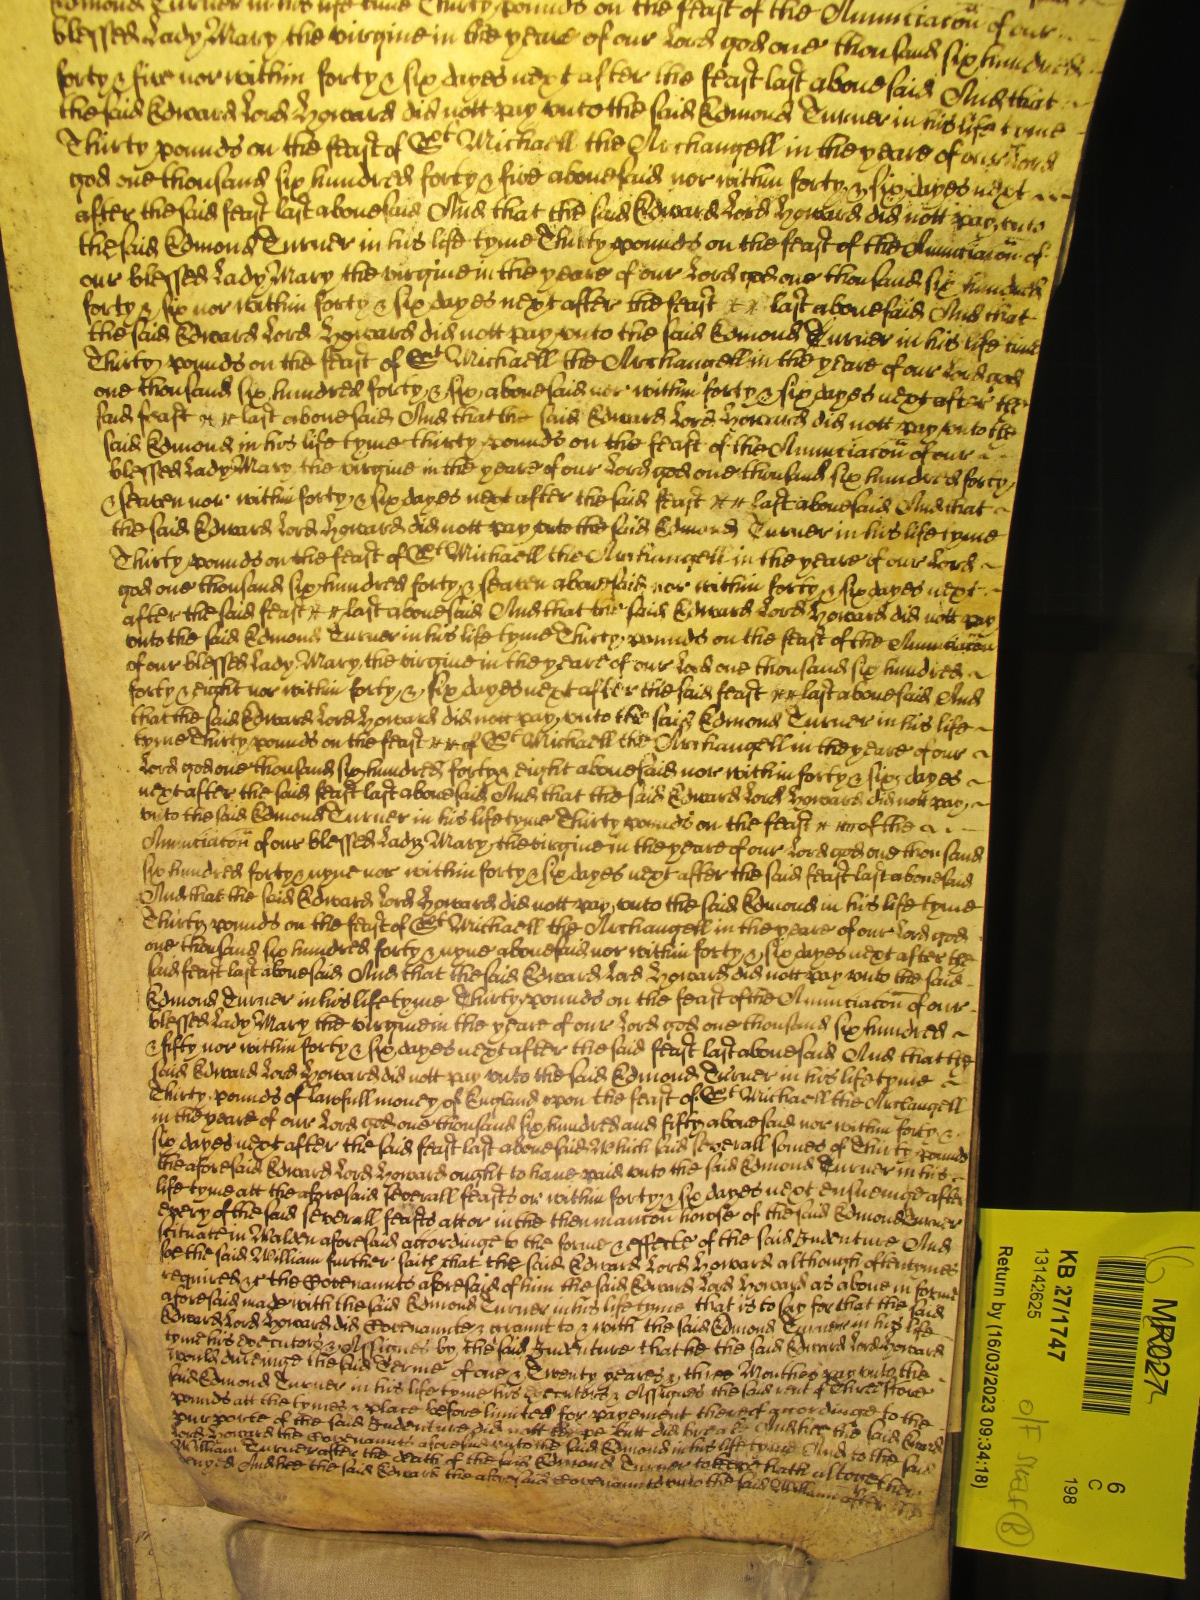 Edmond Turner in his life tyme Thirty pounds on the feast of the Annunciacon of our
blessed Lady Mary the virgine in the yeare of our Lord god one thousand six hundred
forty & five nor within forty & six dayes next after the feast last abouesaid And that
the said Edward Lord Howard did nott pay vnto the said Edmond Turner in his life tyme
Thirty pounds on the feast of St Michaell the Archangell in the yeare of our Lord
god one thousand six hundred forty & five abouesaid nor within forty & six dayes next
after the said feast last abouesaid And that the said Edward Lord Howard did nott pay vnto
the said Edmond Turner in his life tyme Thirty pounds on the feast of the Annunciacon of
our blessed Lady Mary the virgine in the yeare of our Lord god one thousand six hundred
forty & six nor within forty & six dayes next after the feast last abouesaid And that
the said Edward Lord Howard did nott pay vnto the said Edmond Turner in his life time
Thirty pounds on the feast of St Michaell the Archangell in the yeare of our Lord god
one thousand six hundred forty & six abouesaid nor within forty & six dayes next after the
said feast last abouesaid And that the said Edward Lord Howard did nott pay vnto the
said Edmond in his life tyme thirty pounds on the feast of the Annunciacon of our
blessed Lady Mary the virgine in the yeare of our Lord god one thousand six hundred forty
& seaven nor within forty & six dayes next after the said feast last abouesaid And that
the said Edward Lord Howard did nott pay vnto the said Edmond Turner in his life tyme
Thirty pounds on the feast of St Michaell the Archangell in the yeare of our Lord
god one thousand six hundred forty & seaven abouesaid nor within forty & six dayes next
after the said feast last abouesaid And that the said Edward Lord Howard did nott pay
vnto the said Edmond Turner in his life tyme Thirty pounds on the feast of the Annunciacon
of our blessed Lady Mary the virgine in the yeare of our Lord one thousand six hundred
forty & eight nor within forty & six dayes next after the said feast last abouesaid And
that the said Edward Lord Howard did nott pay vnto the said Edmond Turner in his life
tyme Thirty pounds on the feast of St Michaell the Archangell in the yeare of our
Lord god one thousand six hundred forty & eight abouesaid nor within forty & six dayes
next after the said feast last abouesaid And that the said Edward Lord Howard did nott pay
vnto the said Edmond Turner in his life tyme Thirty pounds on the feast of the
Annunciacon of our blessed Lady Mary the virgine in the yeare of our Lord god one thousand
six hundred forty & nyne nor within forty & six dayes next after the said feast last abouesaid
And that the said Edward Lord Howard did nott pay vnto the said Edmond in his life tyme
Thirty pounds on the feast of St Michaell the Archangell in the yeare of our Lord god
one thousand six hundred forty & nyne abouesaid nor within forty & six dayes next after the
said feast last abouesaid And that the said Edward Lord Howard did nott pay vnto the said
Edmond Turner in his life tyme Thirty pounds on the feast of the Annunciacon of our
blessed Lady Mary the virgine in the yeare of our Lord god one thousand six hundred
& fifty nor within forty & six dayes next after the said feast last abouesaid And that the
said Edward Lord Howard did nott pay vnto the said Edmond Turner in his life tyme
Thirty pounds of lawfull money of England vpon the feast of St Michaell the Archangell
in the yeare of our Lord god one thousand six hundred and fifty abouesaid nor within forty &
six dayes next after the said feast last abouesaid Which said severall somes of Thirty pounds
the aforesaid Edward Lord Howard ought to haue paid vnto the said Edmond Turner in his
life tyme att the aforesaid severall feasts or within forty & six dayes next ensueinge after
every of the said severall feasts att or in the then mancon howse of the said Edmond Turner
scituate in Walden aforesaid accordinge to the forme & effecte of the said Indenture And
soe the said William further saith that the said Edward Lord Howard although oftentymes
required the Covenaunts aforesaid of him the said Edward Lord Howard as aboue in forme
aforesaid made with the said Edmond Turner in his life tyme that is to say for that the said
Edward Lord Howard did Covenaunte & graunt to & with the said Edmond Turner in his life
tyme his executors & Assignes by the said Indenture that he the said Edward Lord Howard
would duringe the said Terme of one & Twenty yeares & three Monthes pay vnto the
said Edmond Turner in his life tyme his Executors & Assignes the said rent of Three score
pounds att the tymes & place before limitted for payement thereof accordinge to the
purporte of the said Indenture did nott keepe butt did breake And hee the said Edward
Lord Howard the Covenaunts aforesaid vnto the said Edmond in his life tyme And to the said
William Turner after the death of the said Edmond Turner to keepe hath altogether
denyed And hee the said Edward the aforesaid Covenaunts vnto the said William after
MR0227
KB 27/1747
13142625
Return by (16/03/2023 09:34:18)
6
C
198